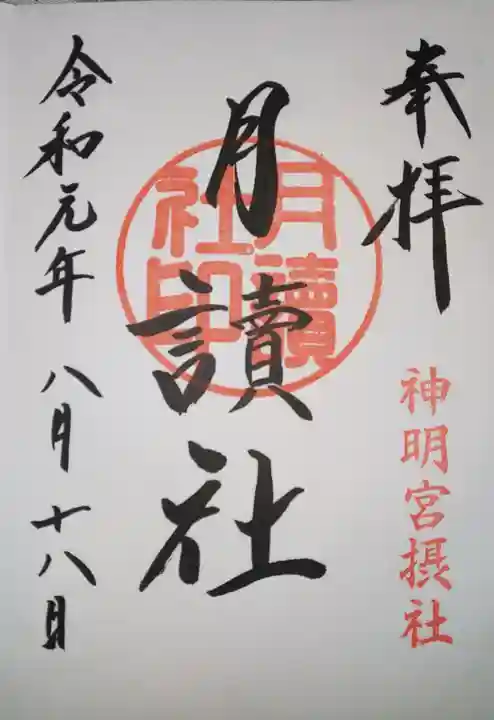 奉拝
神明宮摂社
月讀社
月讀社印
令和元年 八月十八日